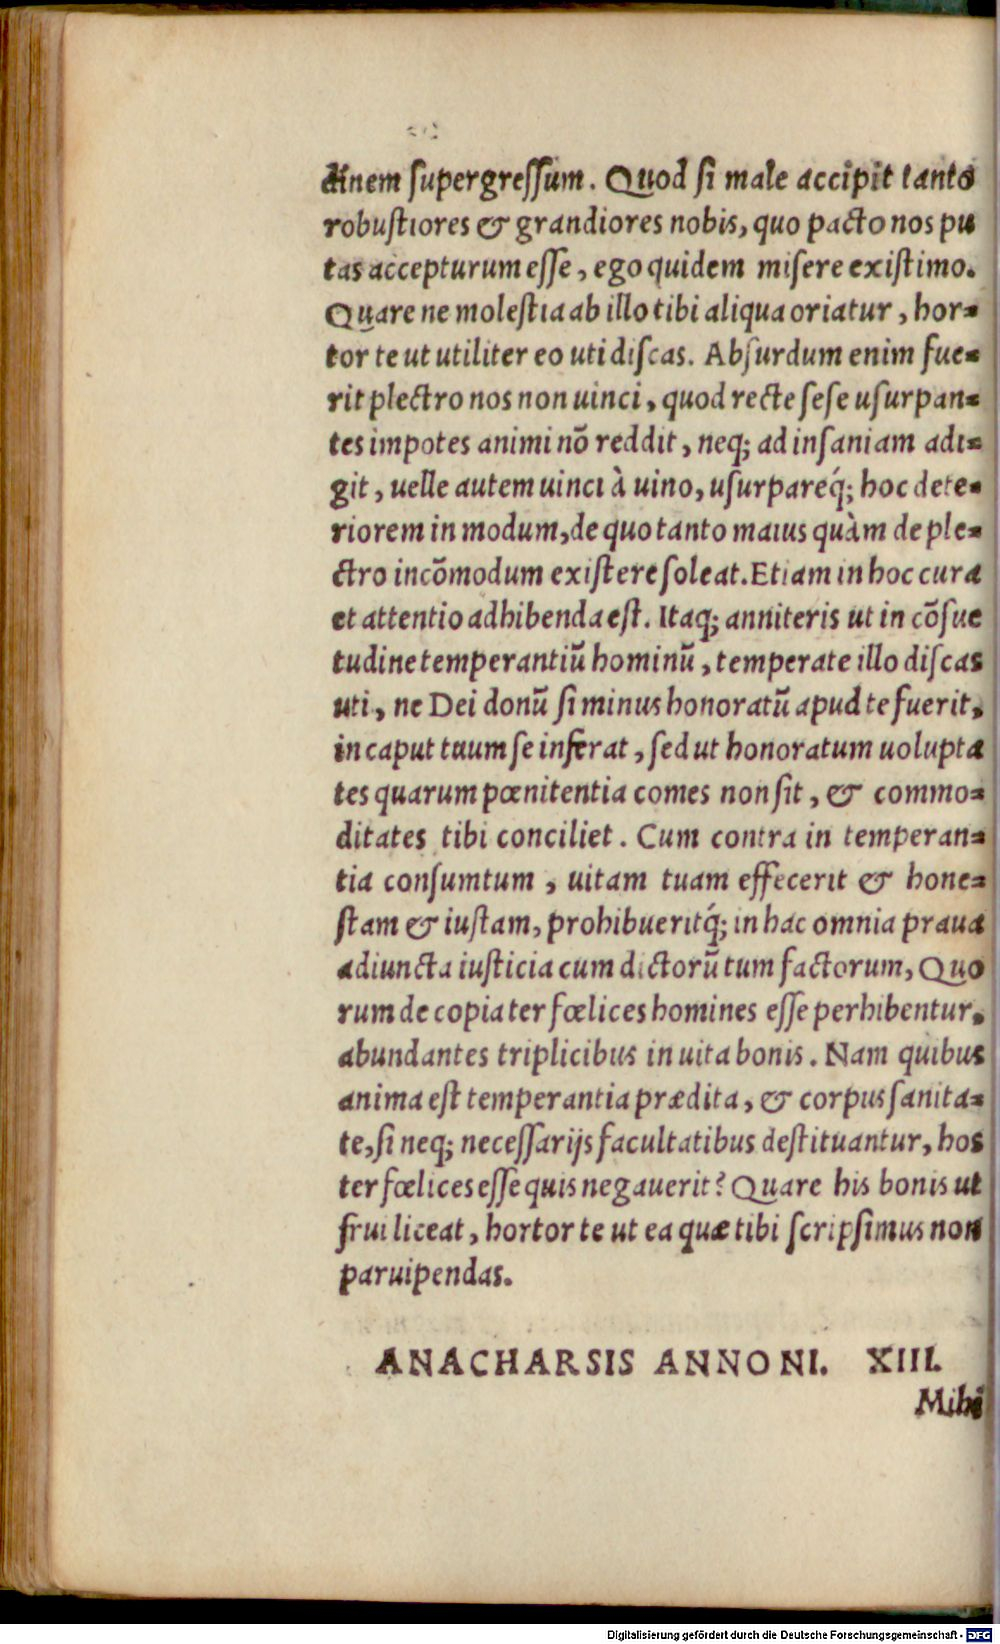 dinem supergreſſum. Quod ſi male accipit tanto
robuſtiores & grandiores nobis, quo pacto nos pu
tas accepturum eſſe, ego quidem miſere exiſtimo.
Quare ne moleſtia ab illo tibi aliqua oriatur, hor⸗
tor te ut utiliter eo uti diſcas. Abſurdum enim fue⸗
rit plectro nos non uinci, quod recte ſeſe uſurpan⸗
tes impotes animi nõ reddit, neq; ad inſaniam adi⸗
git, uelle autem uinci à uino, uſurpareq́; hoc dete⸗
riorem in modum, de quo tanto maius quàm de ple⸗
ctro incõmodum exiſtere ſoleat. Etiam in hoc cura
et attentio adhibenda eſt. Itaq; anniteris ut in cõſue
tudine temperantiũ hominũ, temperate illo diſcas
uti, ne Dei donũ ſi minus honoratũ apud te fuerit,
in caput tuum ſe inferat, ſed ut honoratum uolupta
tes quarum pœnitentia comes non ſit, & commo⸗
ditates tibi conciliet. Cum contra in temperan⸗
tia conſumtum, uitam tuam effecerit & hone⸗
ſtam & iuſtam, prohibueritq́; in hac omnia praua
adiuncta iuſticia cum dictorũ tum factorum, Quo
rum de copia ter fœlices homines eſſe perhibentur,
abundantes triplicibus in uita bonis. Nam quibus
anima eſt temperantia prædita, & corpus ſanita⸗
te, ſi neq; neceſſarijs facultatibus deſtituantur, hos
ter fœlices eſſe quis negauerit? Quare his bonis ut
frui liceat, hortor te ut ea quæ tibi ſcripſimus non
paruipendas.
ANACHARSIS ANNONI. XIII.
Mihi
Digitalisierung gefördert durch die Deutsche Forschungsgemeinschaft - DFG